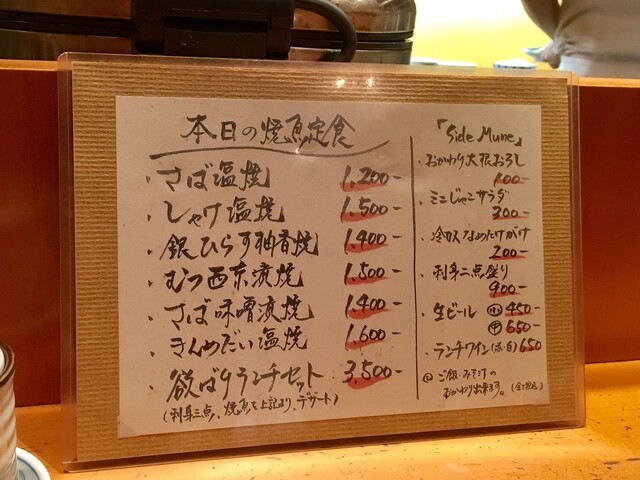 本日の焼魚定食
・さば塩焼 1,200-
・しゃけ塩焼 1,500-
・銀ひらす柚香焼 1,400-
・むつ西京漬焼 1,500-
・さば味噌漬焼 1,400-
・きんめだい塩焼 1,600-
・欲ばりランチセット 3,500-
(刺身三点、焼魚を上記より、デザート)
「Side Mune」
・おかわり大根おろし
100-
・ミニじゃこサラダ
300-
・冷奴なめたけがけ
200-
・刺身二点盛り
900-
・生ビール 小 450-
中 650-
・ランチワイン(赤・白) 650
◎ ご飯・みそ汁の
おかわり出来ます。(全て税込)